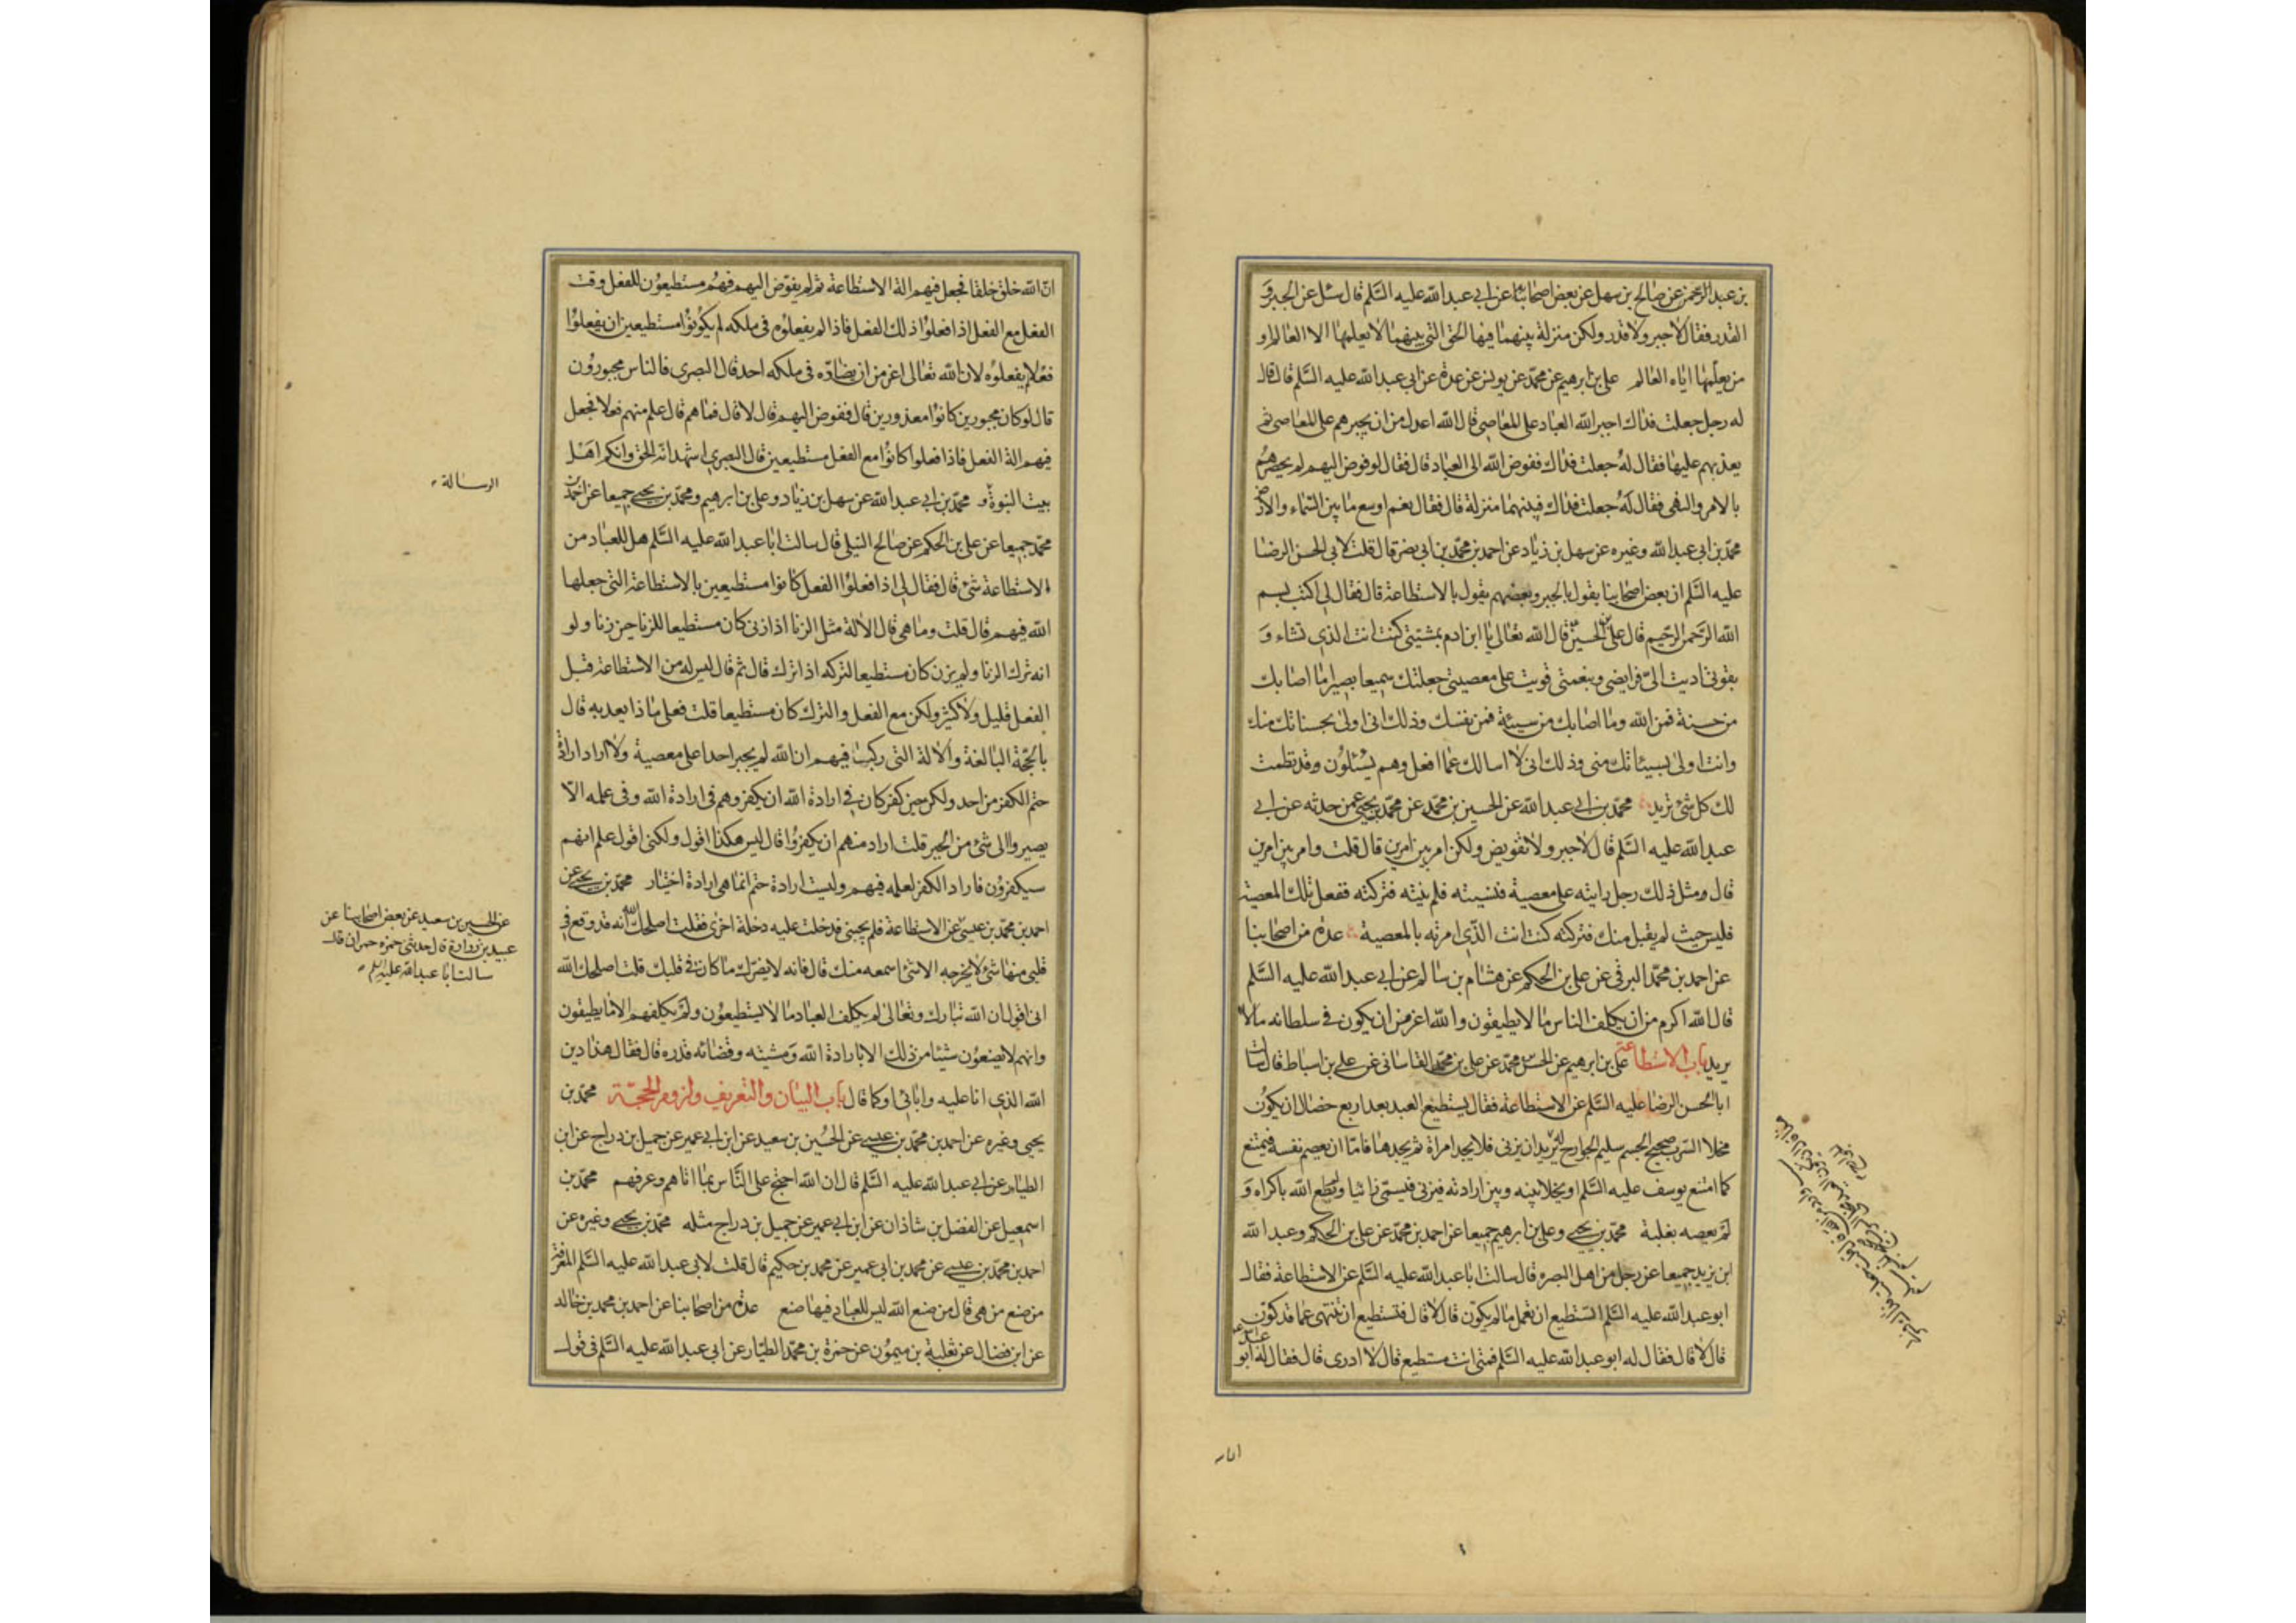 بن عبد الرحمن عن صالح بن سهل عن بعض اصحابنا عن ابي عبد الله عليه السّلم قال سئل عن الجبر و
القدر فقال لا جبر ولا قدر ولكن منزلة بينهما فيها الحق التي بينهما لا يعلمها الا العالم او
من يعلّمها اياه العالم علي بن ابرهيم عن محمّد عن يونس عن عدة عن ابي عبد الله عليه السّلم قال قال
له رجل جعلت فداك اجبر الله العباد على المعاصي قال الله اعدل من ان يجبرهم على المعاصي ثم
يعذبهم عليها فقال له جعلت فداك ففوض الله الى العباد قال فقال لو فوض اليهم لم يحصرهم
بالامر والنهي فقال له جعلت فداك فبينهما منزلة قال فقال نعم اوسع ما بين السماء والارض
محمّد بن ابي عبد الله وغيره عن سهل بن زياد عن احمد بن محمّد بن ابي نصر قال قلت لابي الحسن الرضا
عليه السّلم ان بعض اصحابنا يقول بالجبر وبعضهم يقول بالاستطاعة قال فقال لي اكتب بسم
الله الرّحمن الرّحيم قال علي بن الحسين قال الله تعالى يا ابن ادم بمشيتي كنت انت الذي تشاء و
بقوتي اديت اليّ فرايضي وبنعمتي قويت على معصيتي جعلتك سميعا بصيرا ما اصابك
من حسنة فمن الله وما اصابك من سيئة فمن نفسك وذلك اني اولى بحسناتك منك
وانت اولى بسيئاتك مني وذلك اني لا اسالك عما افعل وهم يسئلون وقد نظمت
لك كل شئ تريد محمّد بن ابي عبد الله عن الحسين بن محمّد عن محمّد بن يحيى عمن حدثه عن ابي
عبد الله عليه السّلم قال لا جبر ولا تفويض ولكن امر بين امرين قال قلت وما امر بين امرين
قال ومثل ذلك رجل رايته على معصية فنهيته فلم ينته فتركته ففعل تلك المعصية
فليس حيث لم يقبل منك فتركته كنت انت الذي امرته بالمعصية عدة من اصحابنا
عن احمد بن محمّد البرقي عن علي بن الحكم عن هشام بن سالم عن ابي عبد الله عليه السّلم
قال الله اكرم من ان يكلف الناس ما لا يطيقون والله اعز من ان يكون في سلطانه ما لا
يريد باب الاستطاعة علي بن ابرهيم عن الحسن محمّد عن علي بن محمّد القاساني عن علي بن اسباط قال سالت
ابا الحسن الرضا عليه السّلم عن الاستطاعة فقال يستطيع العبد بعد اربع خصال ان يكون
مخلا السرب صحيح الجسم سليم الجوارح يريد ان يزني فلا يجد امراة ثم يجدها فاما ان يعصم نفسه فيمتنع
كما امتنع يوسف عليه السّلم او يخلا بينه وبين ارادته فيزني فيسمى زانيا ولم يطع الله باكراه و
لم يعصه بغلبة محمّد بن يحيى وعلي بن ابرهيم جميعا عن احمد بن محمّد عن علي بن الحكم وعبد الله
ابن يزيد جميعا عن رجل من اهل البصره قال سالت ابا عبد الله عليه السّلم عن الاستطاعة فقال
ابو عبد الله عليه السّلم اتستطيع ان تعمل ما لم يكون قال لا قال فتستطيع ان تنتهى عما قد كون
قال لا قال فقال له ابو عبد الله عليه السّلم فمتى انت مستطيع قال لا ادرى قال فقال له ابو
ان الله خلق خلقا فجعل فيهم الة الاستطاعة ثم لم يفوّض اليهم فهم مستطيعون للفعل وقت
الفعل مع الفعل اذا فعلوا ذلك الفعل فاذا لم يفعلوه في ملكه لم يكونوا مستطيعين ان يفعلوا
فعلا لم يفعلوه لان الله تعالى اعز من ان يضادّه في ملكه احد قال البصرى فالناس مجبورون
قال لو كان مجبورين كانوا معذورين قال ففوض اليهم قال لا قال فما هم قال علم منهم فعلا فجعل
فيهم الة الفعل فاذا فعلوا كانوا مع الفعل مستطيعين قال البصرى اشهد انه الحق وانكم اهل
بيت النبوة و محمّد بن ابي عبد الله عن سهل بن زياد وعلي بن ابرهيم ومحمّد بن يحيى جميعا عن احمد بن
محمّد جميعا عن علي بن الحكم عن صالح النيلى قال سالت ابا عبد الله عليه السّلم هل للعباد من
الاستطاعة شئ قال فقال لي اذا فعلوا الفعل كانوا مستطيعين بالاستطاعة التي جعلها
الله فيهم قال قلت وما هي قال الالة مثل الزنا اذا زنى كان مستطيعا للزنا حين زنا ولو
انه ترك الزنا ولم يزن كان مستطيعا لتركه اذا ترك قال ثم قال ليس له من الاستطاعة قبل
الفعل قليل ولا كثير ولكن مع الفعل والترك كان مستطيعا قلت فعلى ماذا يعذبه قال
بالحجّة البالغة والالة التي ركبت فيهم ان الله لم يجبر احدا على معصية ولا اراد ارادة
حتم الكفر من احد ولكن حين كفر كان في ارادة الله ان يكفر وهم في ارادة الله وفي علمه الا
يصيروا الى شئ من الخير قلت اراد منهم ان يكفروا قال ليس هكذا اقول ولكني اقول علم انهم
سيكفرون فاراد الكفر لعلمه فيهم وليست ارادة حتم انما هي ارادة اختيار محمّد بن يحيى عن
احمد بن محمّد بن عيسى عن الاستطاعة فلم يجبني فدخلت عليه دخلة اخرى فقلت اصلحك الله انه قد وقع في
قلبي منها شئ لا يخرجه الا شئ اسمعه منك قال فانه لا يضرّك ما كان في قلبك قلت اصلحك الله
اني اقول ان الله تبارك وتعالى لم يكلف العباد ما لا يستطيعون ولم يكلفهم الا ما يطيقون
وانهم لا يصنعون شيئا من ذلك الا بارادة الله ومشيته وقضائه قدره قال فقال هذا دين
الله الذي انا عليه وابائي او كما قال باب البيان والتعريف ولزوم الحجّة محمّد بن
يحيى وغيره عن احمد بن محمّد بن عيسى عن الحسين بن سعيد عن ابن ابي عمير عن جميل بن دراج عن ابن
الطيار عن ابي عبد الله عليه السّلم قال ان الله احتج على النّاس بما اتاهم وعرفهم محمّد بن
اسمعيل عن الفضل بن شاذان عن ابن ابي عمير عن جميل بن دراج مثله محمّد بن يحيى وغيره عن
احمد بن محمّد بن عيسى عن محمد بن ابي عمير عن محمد بن حكيم قال قلت لابي عبد الله عليه السّلم المعرفة
من صنع من هي قال من صنع الله ليس للعباد فيها صنع عدة من اصحابنا عن احمد بن محمد بن خالد
عن ابن فضال عن ثعلبة بن ميمون عن حمزة بن محمّد الطيّار عن ابي عبد الله عليه السّلم في قول
الرسالة
عن الحسين بن سعيد عن بعض اصحابنا عن
عبيد بن زرارة قال حدثني حمزه حمران قال
سالت ابا عبد الله عليه السلم